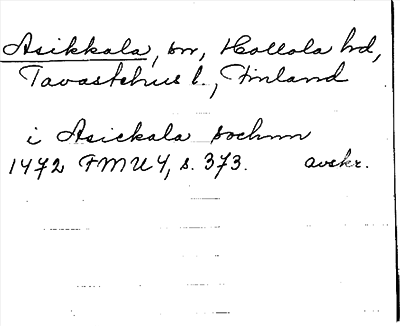 Asikkala, sn, Hollola hd,
Tavastehus l., Finland
i Asickala sochnn
1472 FMU 4, s. 373. avskr.